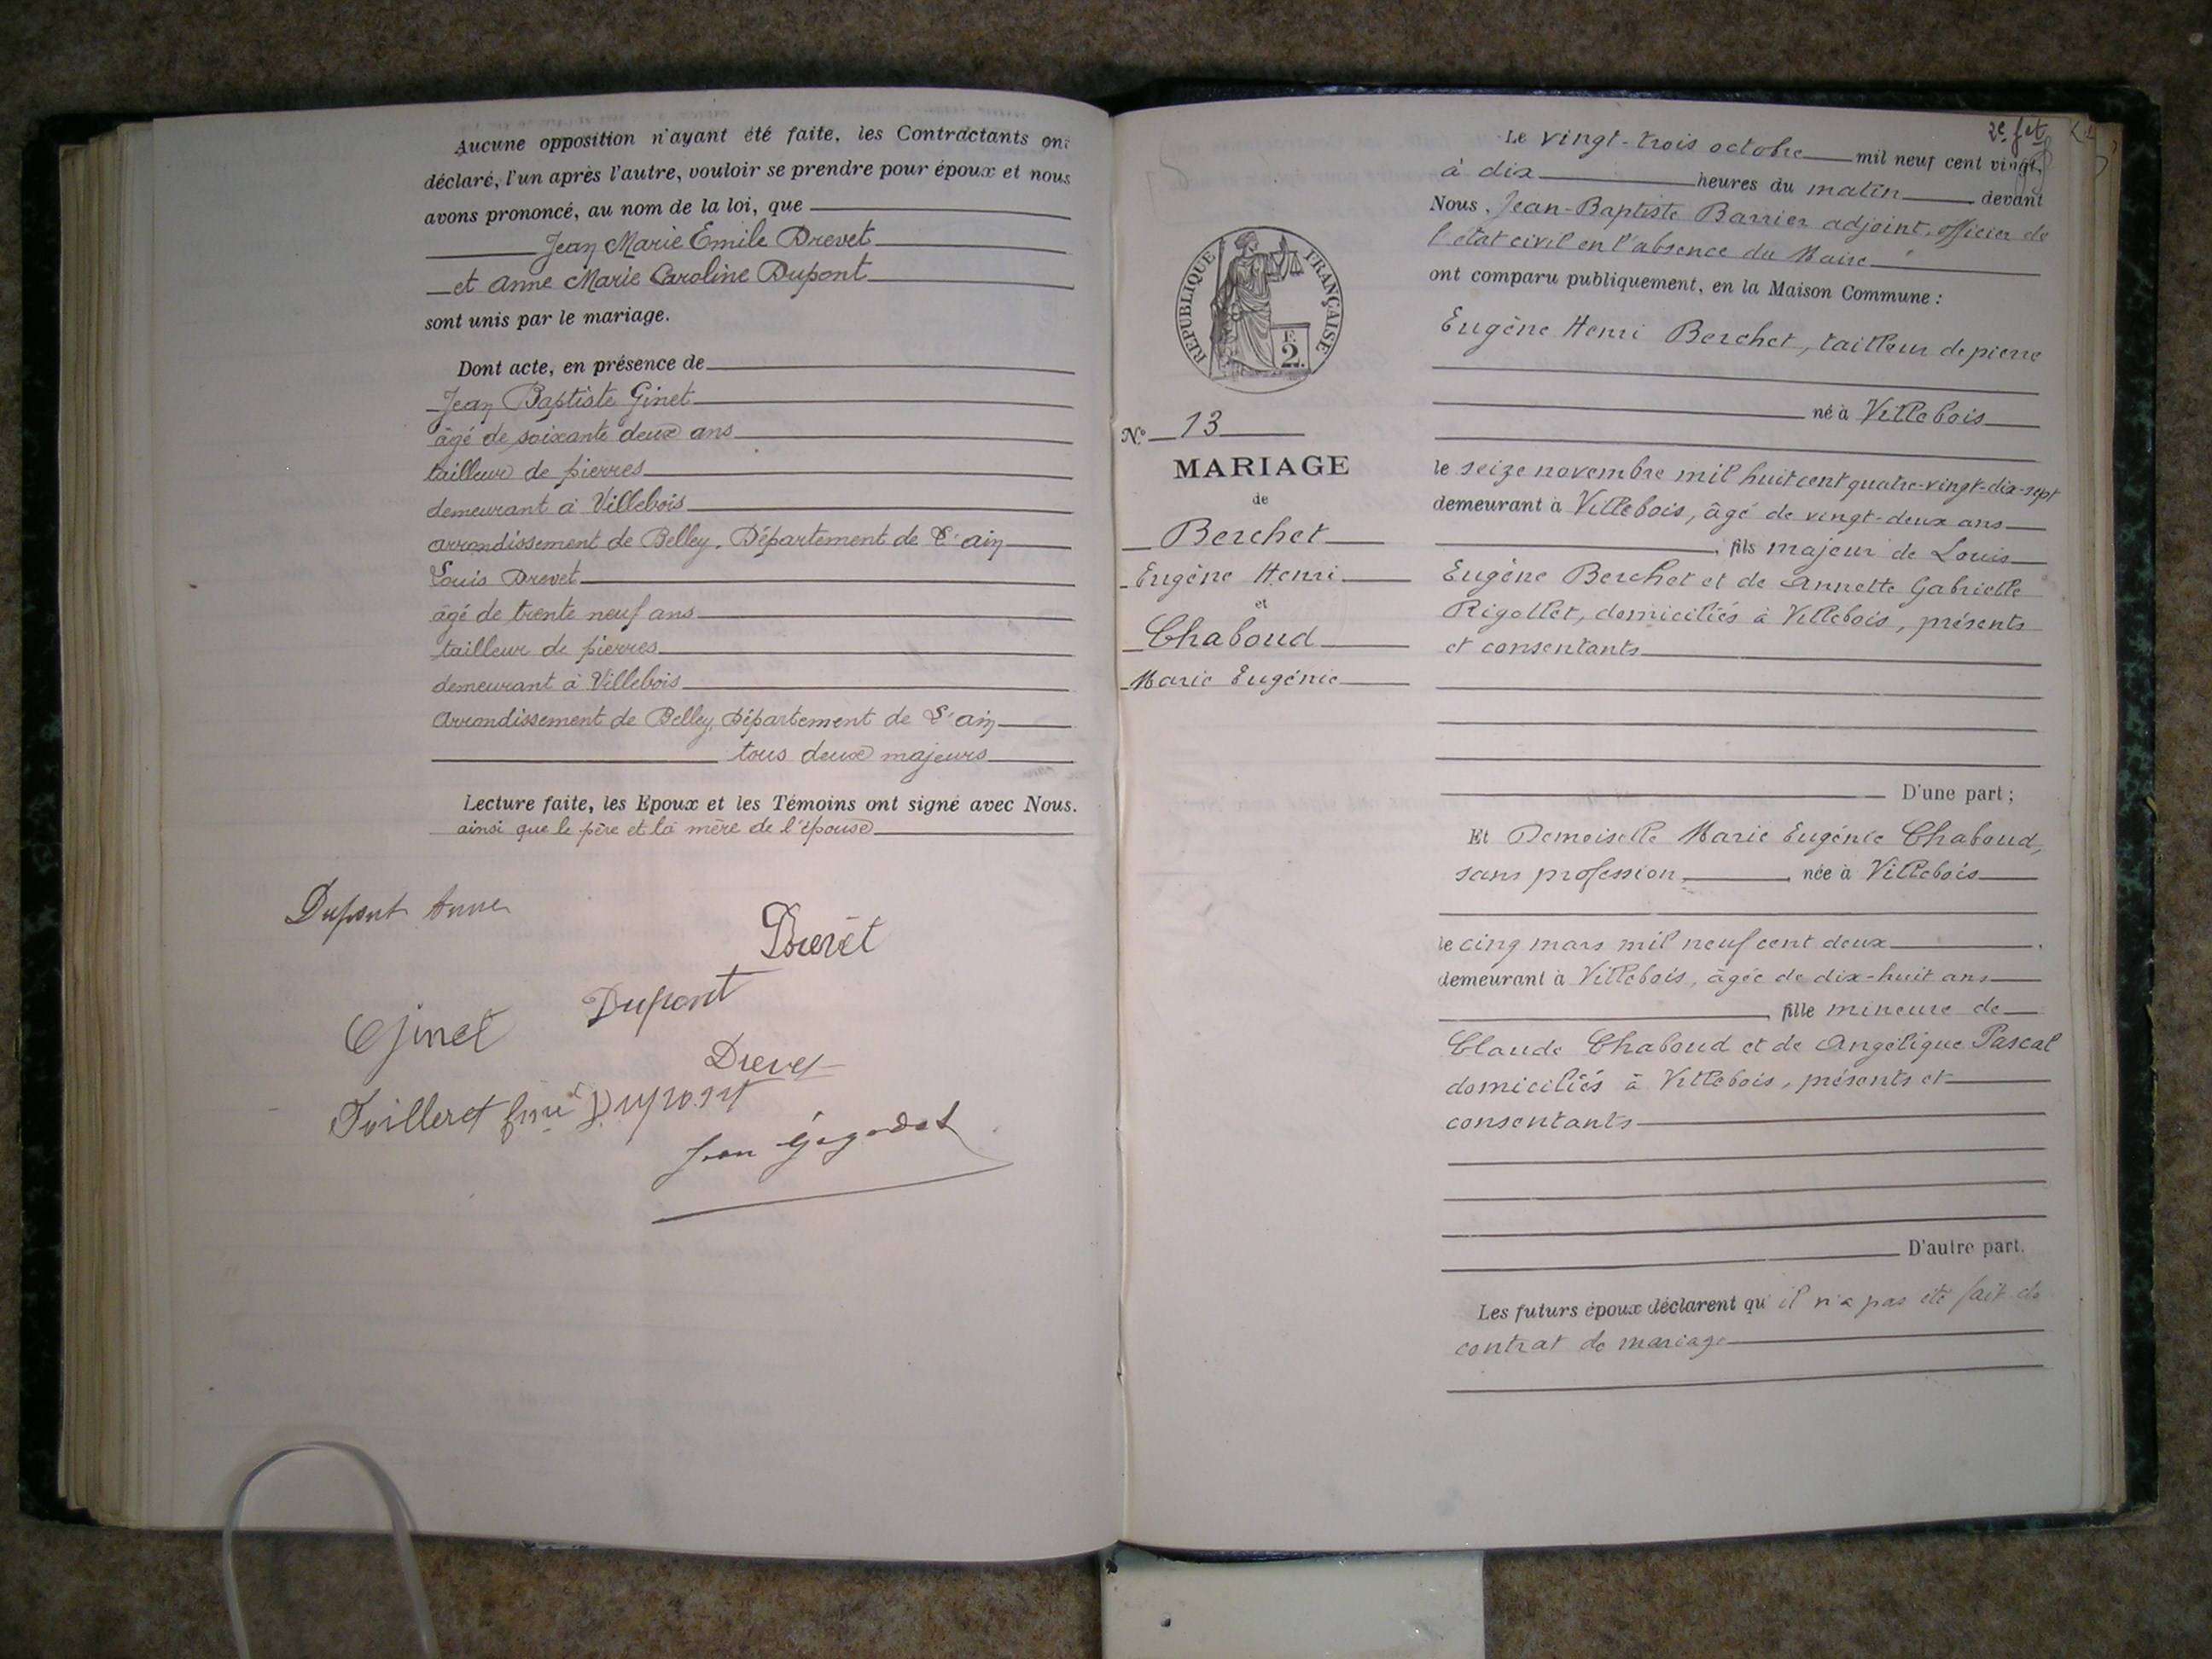 Aucune opposition n'ayant été faite, les Contractants ont
déclaré, l'un après l'autre, vouloir se prendre pour époux et nous
avons prononcé, au nom de la loi, que
Jean Marie Emile Drevet
et Anne Marie Caroline Dupont
sont unis par le mariage.
Dont acte, en présence de
Jean Baptiste Ginet
âgé de soixante deux ans
tailleur de pierres
demeurant à Villebois
arrondissement de Belley, Département de L'ain
Louis Drevet
âgé de trente neuf ans
tailleur de pierres
demeurant à Villebois
arrondissement de Belley, Département de L'ain
tous deux majeurs
Lecture faite, les Epoux et les Témoins ont signé avec Nous.
ainsi que le père et la mère de l'épouse
Dupont Anne
Drevet
Dupont
Ginet
Drevet
Dupont
Jean
2e fet
Le vingt-trois octobre mil neuf cent vingt,
à dix heures du matin devant
Nous, Jean-Baptiste Barrier adjoint, officier de
l'état civil en l'absence du Maire
ont comparu publiquement, en la Maison Commune :
Eugène Henri Berchet, tailleur de pierre
né à Villebois
le seize novembre mil huit cent quatre-vingt-dix-sept
demeurant à Villebois, âgé de vingt-deux ans
, fils majeur de Louis
Eugène Berchet et de Annette Gabrielle
Rigollet, domiciliés à Villebois, présents
et consentants
D'une part ;
Et Demoiselle Marie Eugénie Chaboud,
sans profession, née à Villebois
le cinq mars mil neuf cent deux
demeurant à Villebois, âgée de dix-huit ans
, fille mineure de
Claude Chaboud et de Angélique Pascal
domiciliés à Villebois, présents et
consentants
D'autre part.
Les futurs époux déclarent qu'il n'a pas été fait de
contrat de mariage
RÉPUBLIQUE FRANÇAISE
F.
2.
N° 13
MARIAGE
de
Berchet
Eugène Henri
et
Chaboud
Marie Eugénie